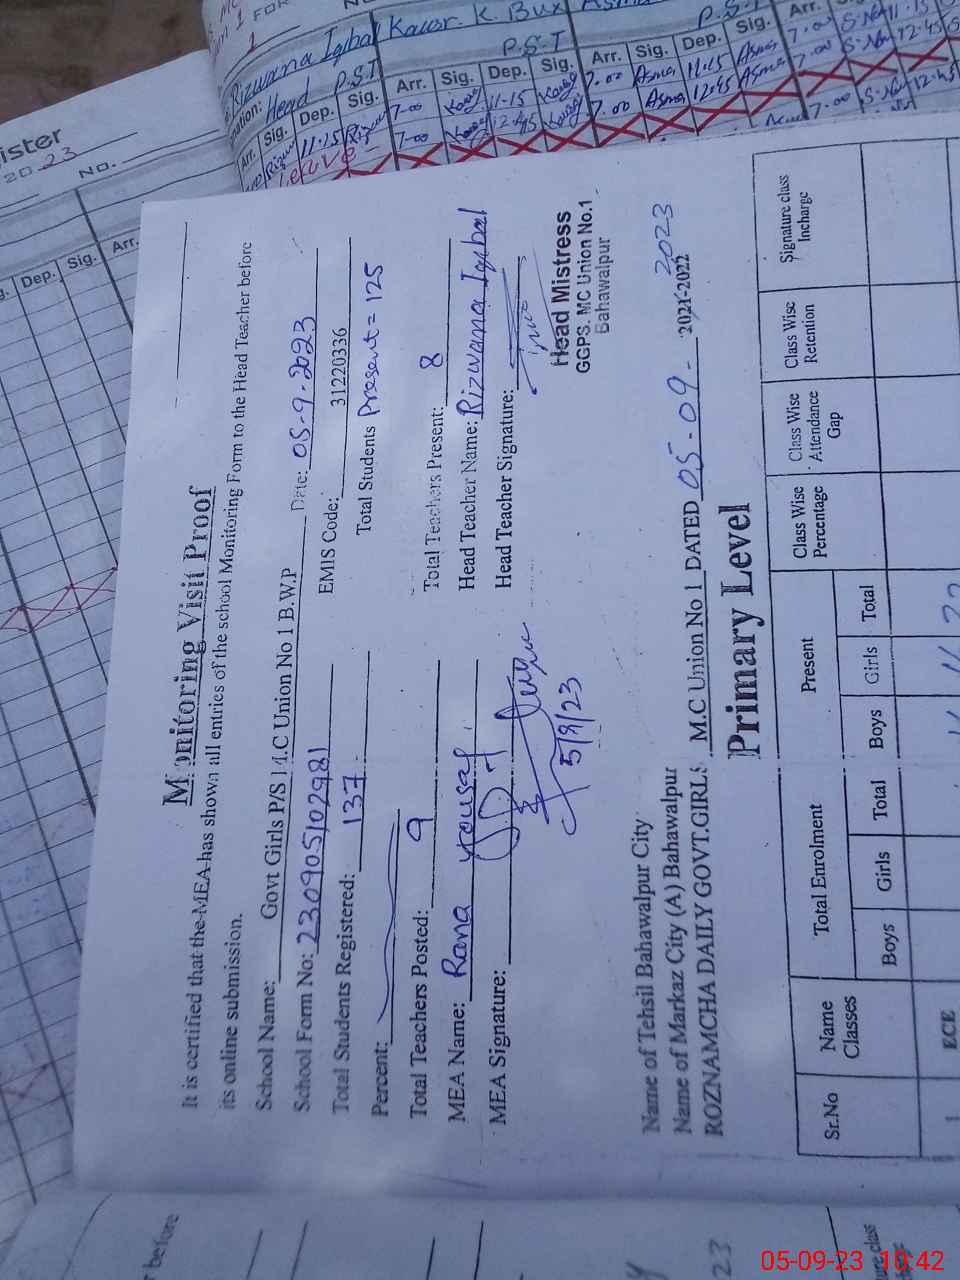 Monitoring Visit Proof
It is certified that the MEA has shown all entries of the school Monitoring Form to the Head Teacher before
its online submission.
School Name: Govt Girls P/S M.C Union No 1 B.W.P Date: 05-9-2023
School Form No: 230905102981 EMIS Code: 31220336
Total Students Registered: 137 Total Students Present = 125
Percent:
Total Teachers Posted: 9 Total Teachers Present: 8
MEA Name: Rana yousaf Head Teacher Name: Rizwana Iqbal
MEA Signature: Head Teacher Signature:
5/9/23
Head Mistress
GGPS. MC Union No.1
Bahawalpur
Name of Tehsil Bahawalpur City
Name of Markaz City (A) Bahawalpur
ROZNAMCHA DAILY GOVT.GIRLS M.C Union No 1 DATED 05-09- 2021-2022 2023
Primary Level
Sr.No Name Classes Total Enrolment Present Class Wise Percentage Class Wise Attendance Gap Class Wise Retention Signature class Incharge
Boys Girls Total Boys Girls Total
1 ECE
Rizwana Iqbal Kausar K. Bux
Head P.S.T P.S.T P.S.T
Arr. Sig. Dep. Sig. Arr. Sig. Dep. Sig. Arr. Sig. Dep. Sig. Arr.
11.15 7-00 11-15 7.00 Asma 11.15 Asma 7.00 11.15
Leave 7-00 12.45 7.00 Asma 12.45 Asma 7.00 12.45
7.00 12.45
ister
2023 No.
Dep. Sig. Arr.
before
23
05-09-23 10:42